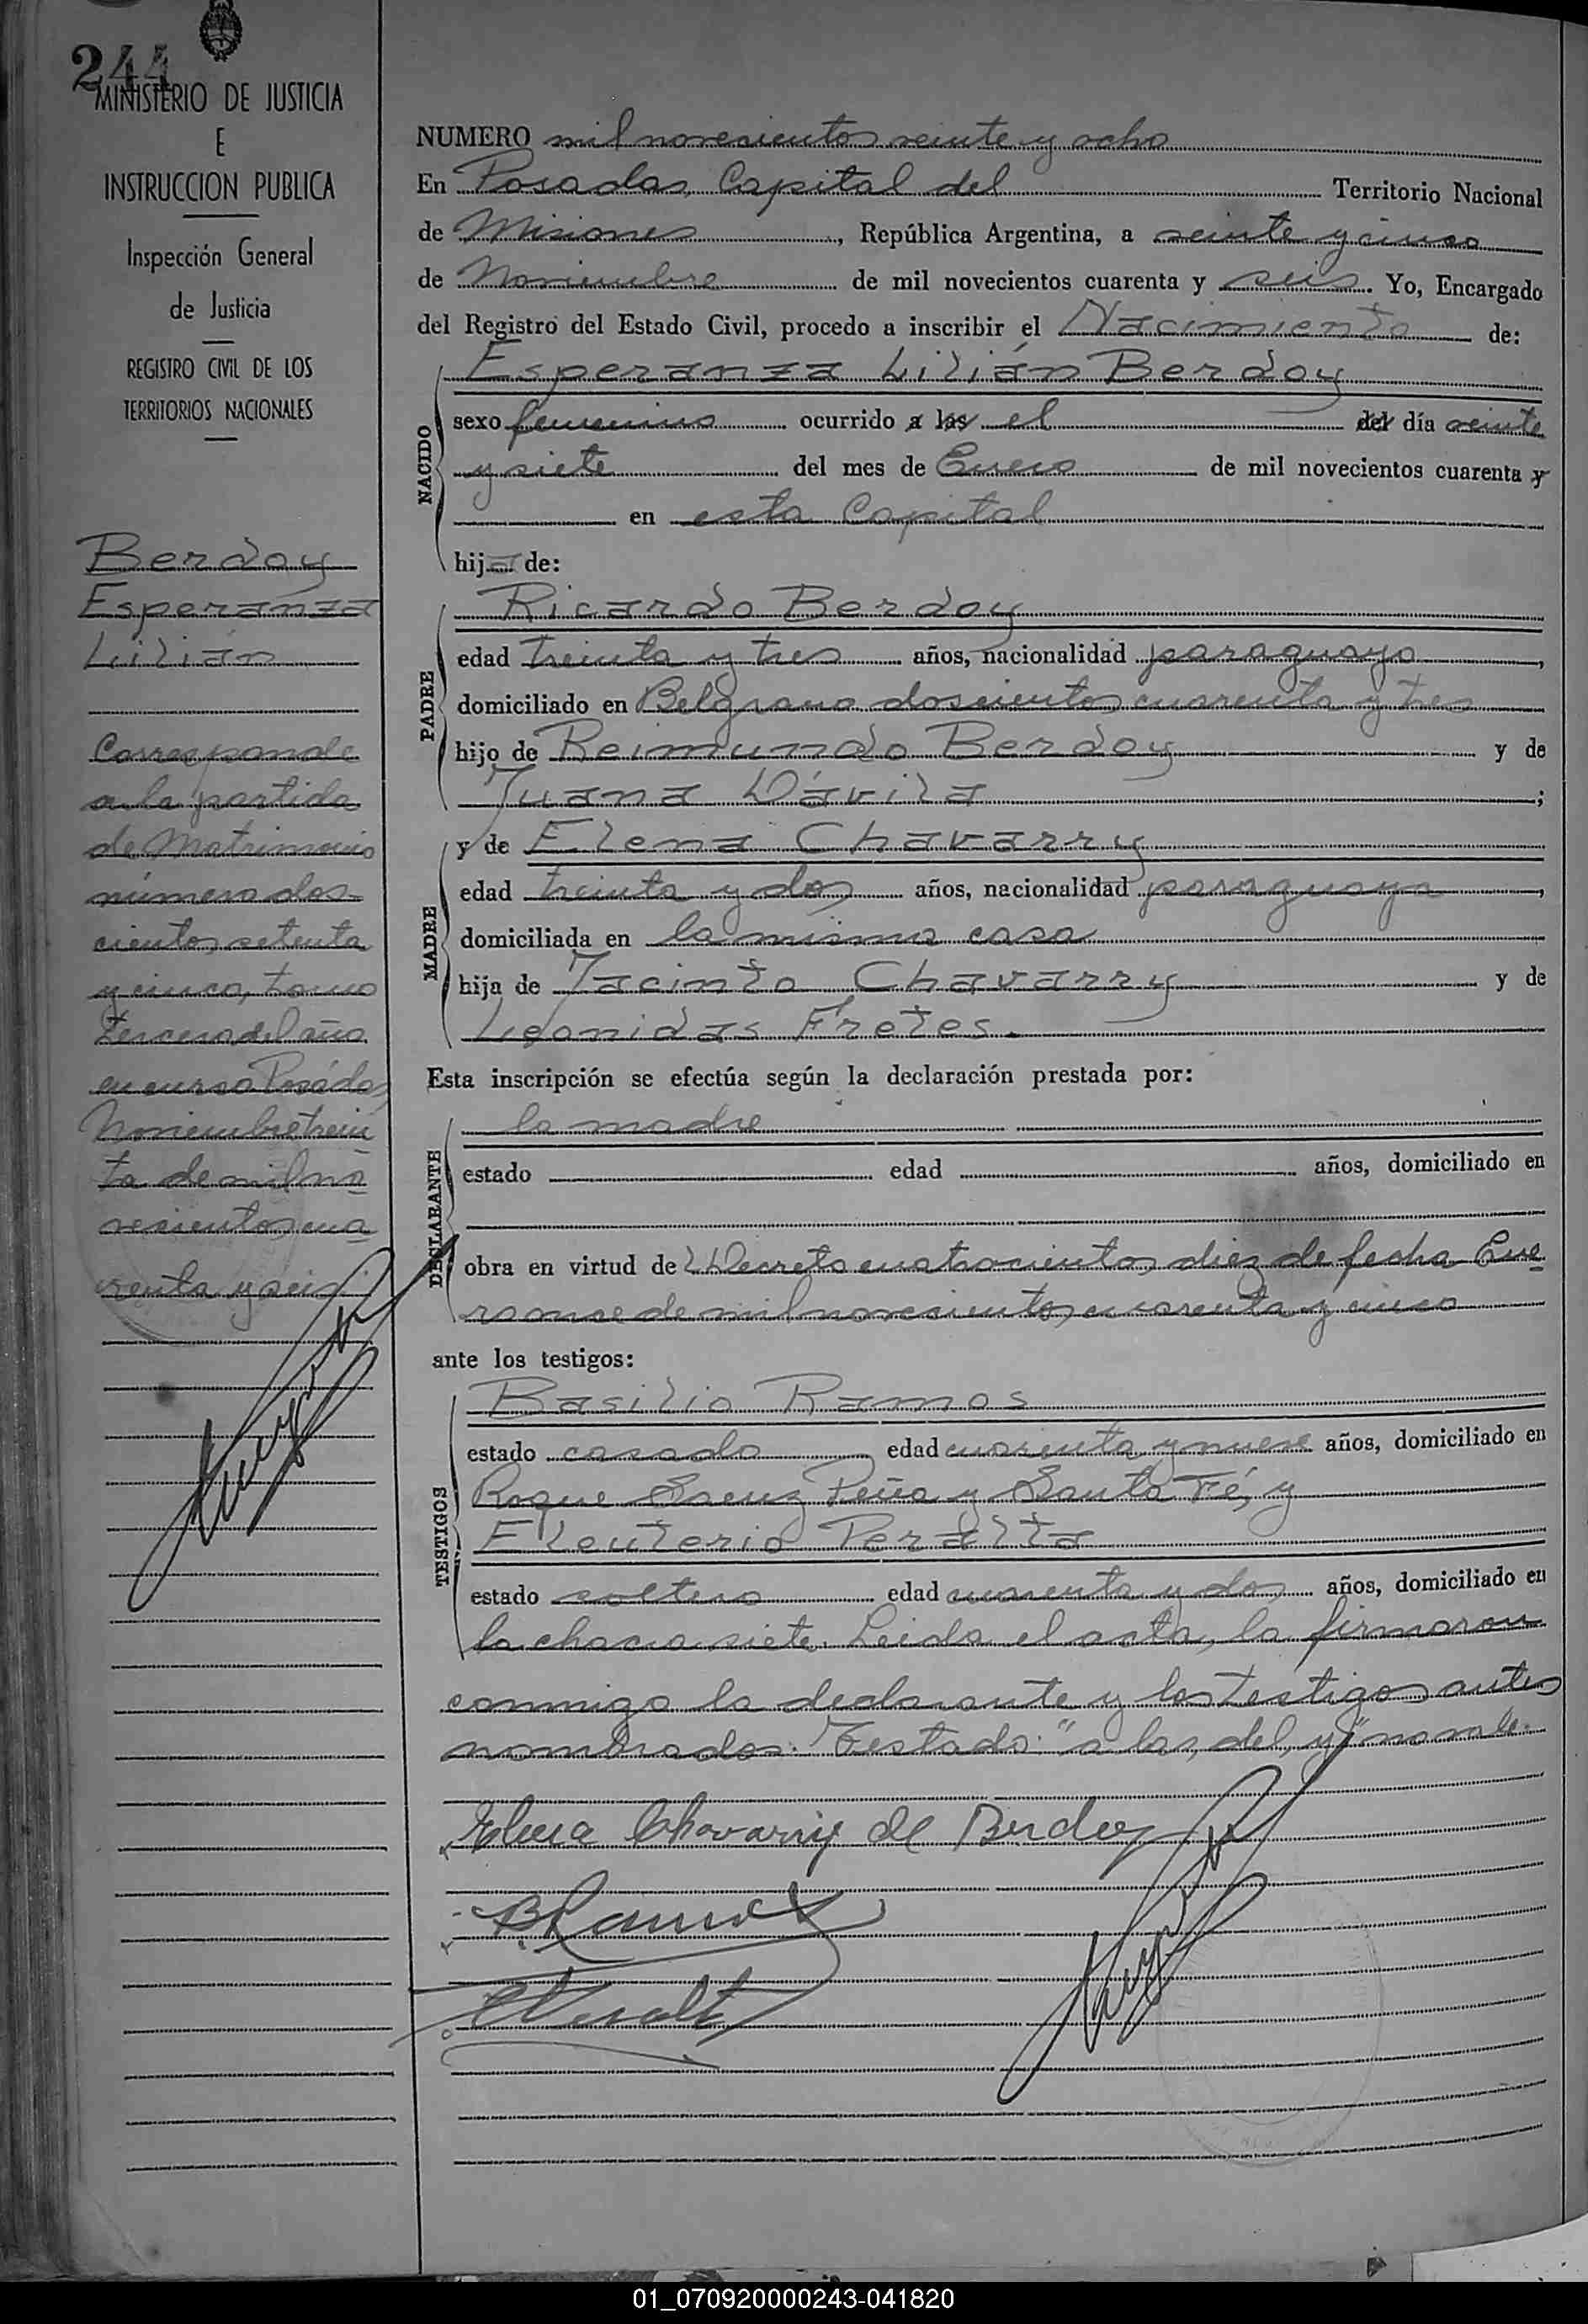 244
MINISTERIO DE JUSTICIA
E
INSTRUCCION PUBLICA
Inspección General
de Justicia
REGISTRO CIVIL DE LOS
TERRITORIOS NACIONALES
Berdoy
Esperanza
Lilián
Corresponde
a la partida
de Matrimonio
número dos-
cientos setenta
y cinco, tomo
tercero del año
en curso Posadas,
Noviembre trein
ta de mil no
vecientos cua
renta y seis
NUMERO mil novecientos veinte y ocho
En Posadas, Capital del Territorio Nacional
de Misiones, República Argentina, a veinte y cinco
de Noviembre de mil novecientos cuarenta y seis. Yo, Encargado
del Registro del Estado Civil, procedo a inscribir el Nacimiento de:
NACIDO
Esperanza Lilián Berdoy
sexo femenino ocurrido a las el del día veinte
y siete del mes de Enero de mil novecientos cuarenta y
en esta Capital
hija de:
PADRE
Ricardo Berdoy
edad treinta y tres años, nacionalidad paraguayo,
domiciliado en Belgrano doscientos cuarenta y tres
hijo de Reimundo Berdoy y de
Juana Dávila;
MADRE
y de Elena Chavarry
edad treinta y dos años, nacionalidad paraguaya,
domiciliada en la misma casa
hija de Jacinto Chavarry y de
Leonidas Fretes.
Esta inscripción se efectúa según la declaración prestada por:
DECLARANTE
la madre
estado edad años, domiciliado en
obra en virtud de Decreto cuatrocientos diez de fecha Ene
ro once de mil novecientos cuarenta y cinco
ante los testigos:
TESTIGOS
Basilio Ramos
estado casado edad cuarenta y nueve años, domiciliado en
Roque Saenz Peña y Santa Fé, y
Eleuterio Peralta
estado soltero edad cuarenta y dos años, domiciliado en
la chacra siete. Leida el acta, la firmaron
conmigo la declarante y los testigos antes
nombrados. Testado: "a las, del, y" no vale.
Elena Chavarry de Berdoy
B. Ramos
E Peralta
01_070920000243-041820